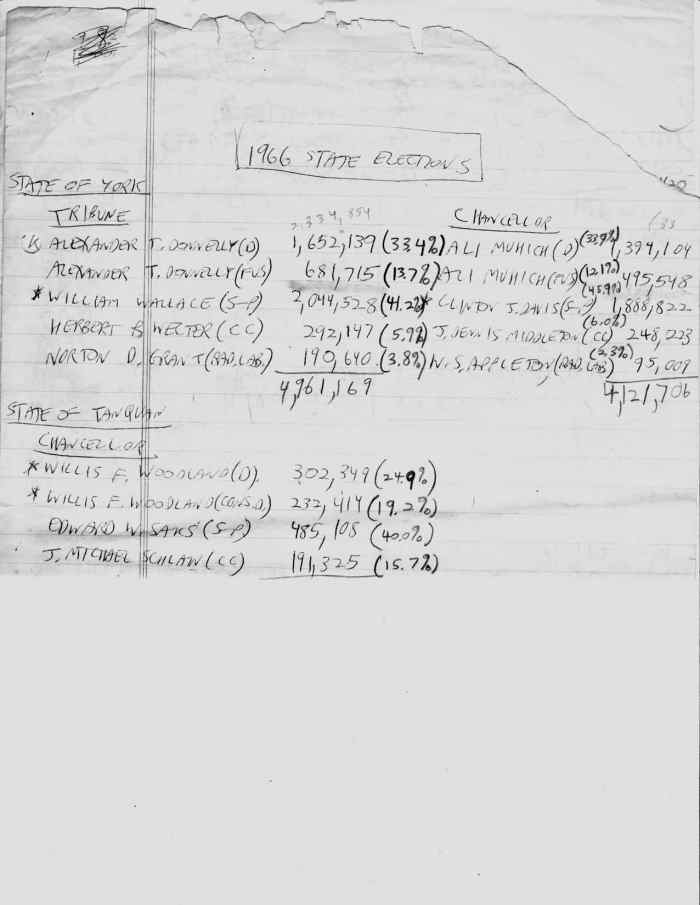 1966 STATE ELECTIONS
STATE OF YORK
TRIBUNE
2,334,854
CHANCELLOR
(33
ALEXANDER T. DONNELLY (D) 1,652,139 (33.4%) ALI MUHICH (D) (33.9%) 1,394,104
ALEXANDER T. DONNELLY (FUS) 681,715 (13.7%) ALI MUHICH (FUS) (12.1%) 495,548
* WILLIAM WALLACE (S-P) 2,044,528 (41.2%) * CLINTON J. DAVIS (S-P) (45.9%) 1,888,822
HERBERT B WELTER (CC) 292,147 (5.9%) J. DENNIS MIDDLETON (CC) (6.0%) 248,223
NORTON D. GRANT (RAD. LAB.) 190,640 (3.8%) W.S. APPLETON (RAD. LAB) (2.3%) 95,009
4,961,169 4,121,706
STATE OF TANQUAN
CHANCELLOR
* WILLIS F. WOODLAND (D). 302,349 (24.9%)
* WILLIS F. WOODLAND (CONS. D.) 232,414 (19.2%)
EDWARD W. SAKS (S-P) 485,108 (40.0%)
J. MICHAEL SCHLAW (CC) 191,325 (15.7%)